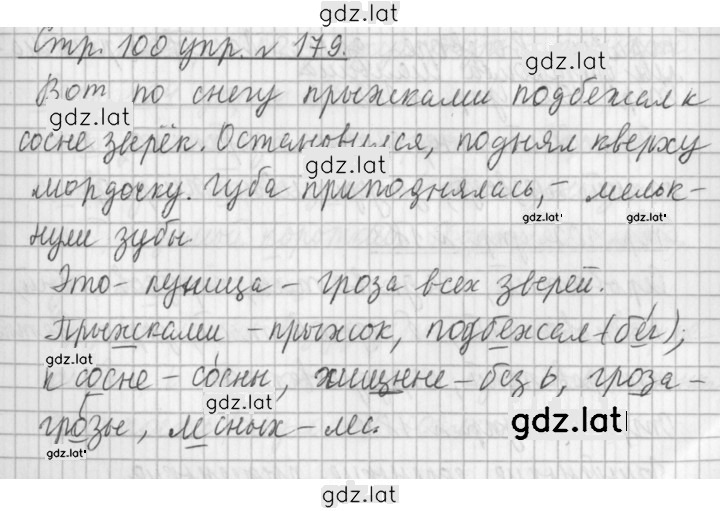 gdz.lat
Стр. 100 упр. № 179.
gdz.lat
Вот по снегу прыжками подбежал к
gdz.lat
сосне зверёк. Остановился, поднял кверху
gdz.lat
мордочку. Губа приподнялась, - мельк-
gdz.lat gdz.lat
нули зубы
Это - куница - гроза всех зверей.
Прыжками - прыжок, подбежал (бег);
gdz.lat
к сосне - сосны, - без ь, гроза -
gdz.lat
грозы, лесных - лес.
gdz.lat gdz.lat
gdz.lat